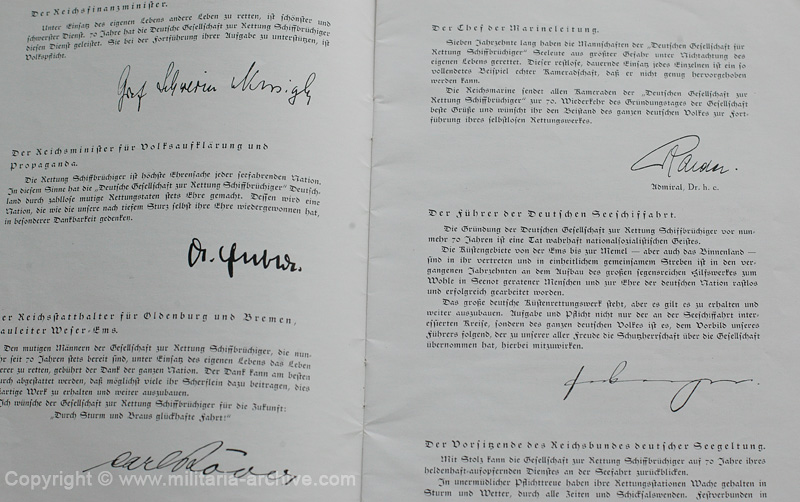 Der Reichsfinanzminister.
Unter Einsatz des eigenen Lebens andere Leben zu retten, ist schönster und
schwerster Dienst. 70 Jahre hat die Deutsche Gesellschaft zur Rettung Schiffbrüchiger
diesen Dienst geleistet. Sie bei der Fortführung ihrer Aufgabe zu unterstützen, ist
Volkspflicht.
Graf Schwerin Krosigk
Der Reichsminister für Volksaufklärung und
Propaganda.
Die Rettung Schiffbrüchiger ist höchste Ehrensache jeder seefahrenden Nation.
In diesem Sinne hat die „Deutsche Gesellschaft zur Rettung Schiffbrüchiger" Deutsch-
land durch zahllose mutige Rettungstaten stets Ehre gemacht. Dessen wird eine
Nation, die wie die unsere nach tiefem Sturz selbst ihre Ehre wiedergewonnen hat,
in besonderer Dankbarkeit gedenken.
Dr.
er Reichsstatthalter für Oldenburg und Bremen,
auleiter Weser-Ems.
Den mutigen Männern der Gesellschaft zur Rettung Schiffbrüchiger, die nun-
hr seit 70 Jahren stets bereit sind, unter Einsatz des eigenen Lebens das Leben
erer zu retten, gebührt der Dank der ganzen Nation. Der Dank kann am besten
urch abgestattet werden, daß möglichst viele ihr Scherflein dazu beitragen, dies
artige Werk zu erhalten und weiter auszubauen.
Ich wünsche der Gesellschaft zur Rettung Schiffbrüchiger für die Zukunft:
„Durch Sturm und Braus glückhafte Fahrt!"
Carl Röver
Der Chef der Marineleitung.
Sieben Jahrzehnte lang haben die Mannschaften der „Deutschen Gesellschaft für
Rettung Schiffbrüchiger" Seeleute aus größter Gefahr unter Nichtachtung des
eigenen Lebens gerettet. Dieser restlose, dauernde Einsatz jedes Einzelnen ist ein so
vollendetes Beispiel echter Kameradschaft, daß er nicht genug hervorgehoben
werden kann.
Die Reichsmarine sendet allen Kameraden der „Deutschen Gesellschaft zur
Rettung Schiffbrüchiger" zur 70. Wiederkehr des Gründungstages der Gesellschaft
beste Grüße und wünscht ihr den Beistand des ganzen deutschen Volkes zur Fort-
führung ihres selbstlosen Rettungswerkes.
Raeder.
Admiral, Dr. h. c.
Der Führer der Deutschen Seeschiffahrt.
Die Gründung der Deutschen Gesellschaft zur Rettung Schiffbrüchiger vor nun-
mehr 70 Jahren ist eine Tat wahrhaft nationalsozialistischen Geistes.
Die Küstengebiete von der Ems bis zur Memel — aber auch das Binnenland —
sind in ihr vertreten und in einheitlichem gemeinsamem Streben ist in den ver-
gangenen Jahrzehnten an dem Aufbau des großen segensreichen Hilfswerkes zum
Wohle in Seenot geratener Menschen und zur Ehre der deutschen Nation rastlos
und erfolgreich gearbeitet worden.
Das große deutsche Küstenrettungswerk steht, aber es gilt es zu erhalten und
weiter auszubauen. Aufgabe und Pflicht nicht nur der an der Seeschiffahrt inter-
essierten Kreise, sondern des ganzen deutschen Volkes ist es, dem Vorbild unseres
Führers folgend, der zu unserer aller Freude die Schutzherrschaft über die Gesellschaft
übernommen hat, hierbei mitzuwirken.
Der Vorsitzende des Reichsbundes deutscher Seegeltung.
Mit Stolz kann die Gesellschaft zur Rettung Schiffbrüchiger auf 70 Jahre ihres
heldenhaft-aufopfernden Dienstes an der Seefahrt zurückblicken.
In unermüdlicher Pflichttreue haben ihre Rettungsstationen Wache gehalten in
Sturm und Wetter, durch alle Zeiten und Schicksalswenden. Fest verbunden in
Copyright © www.militaria-archive.com